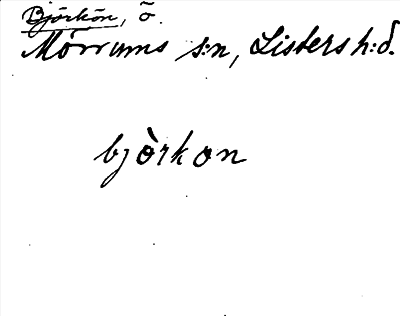 Björkön, ö.
Mörrums s:n, Listers h:d.
bjòrkon